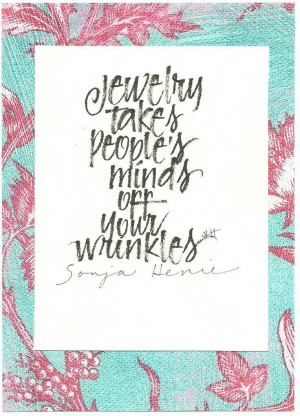 Jewelry
takes
people's
minds
off
your
wrinkles
Sonja Henie